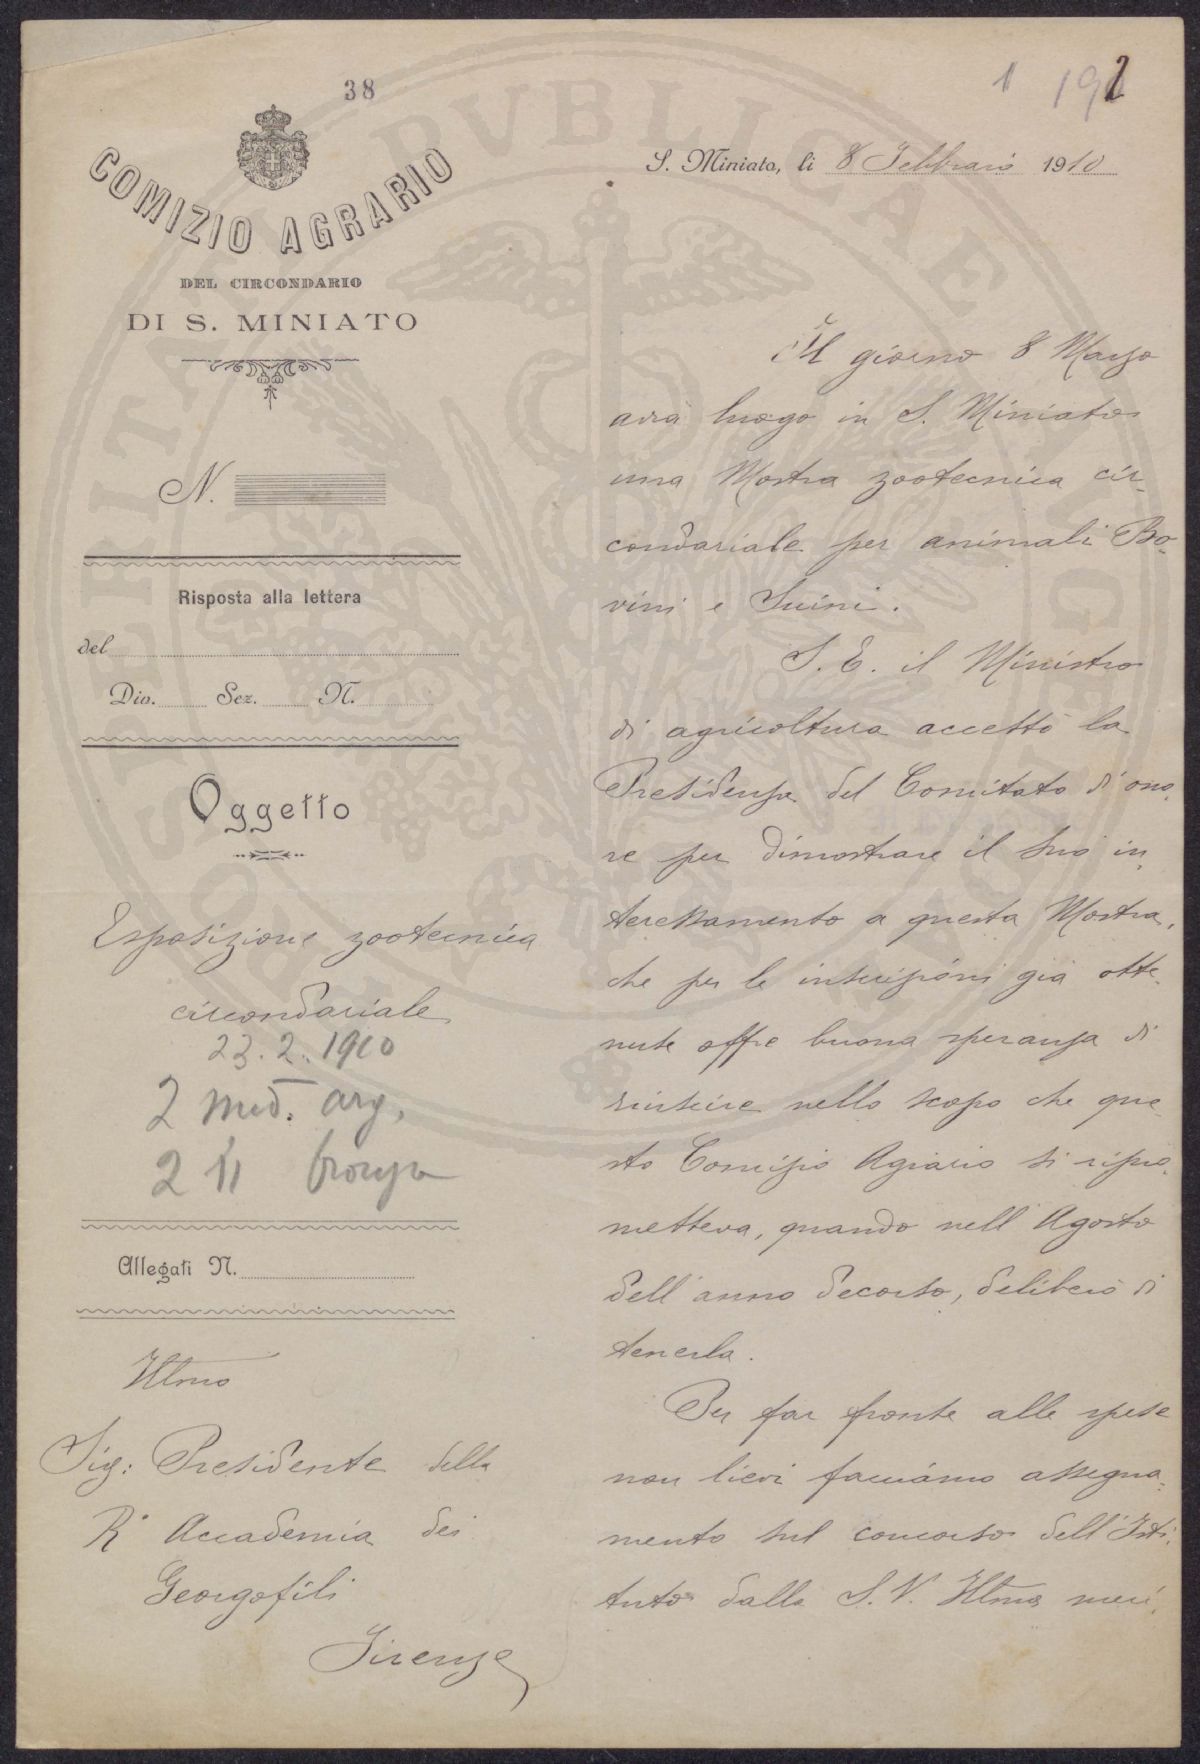 38
1 192
COMIZIO AGRARIO
DEL CIRCONDARIO
DI S. MINIATO
N.
Risposta alla lettera
del
Div. Sez. N.
Oggetto
Esposizione zootecnica
circondariale
23.2.1910
2 med. arg.
2 " bronzo
Allegati N.
Illmo
Sig: Presidente della
Rª Accademia dei
Georgofili
Firenze
S. Miniato, li 8 Febbraio 1910
Il giorno 8 Marzo
avrà luogo in S. Miniato
una Mostra zootecnica cir-
condariale per animali Bo-
vini e Suini.
S. E. il Ministro
di agricoltura accettò la
Presidenza del Comitato di ono-
re per dimostrare il suo in-
teressamento a questa Mostra,
che per le inscrizioni già otte-
nute offre buona speranza di
riuscire nello scopo che que-
sto Comizio Agrario si ripro-
metteva, quando nell'Agosto
dell'anno decorso, deliberò di
tenerla.
Per far fronte alle spese
non lievi facciamo assegna-
mento sul concorso dell'Isti-
tuto dalla S. V. Illma meri-
PVBLICAE